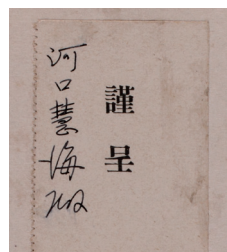 謹呈
河口慧海殿